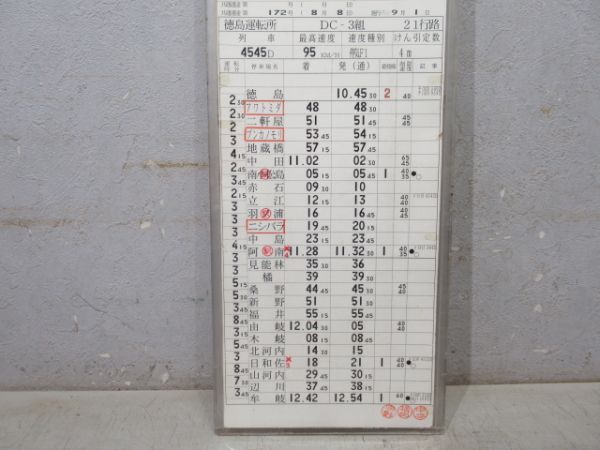 172 1 8 月 8 日 9 月 1 日
徳島運転所 DC-3組 21行路
列車 最高速度 速度種別 けん引定数
4545D 95 4
停車場名 着 発(通) 記事
徳島 10.45 30 2 40
2 30 アワトミダ 48 48 30
2 二軒屋 51 51 45 45 45
2 ブンカノモリ 53 45 54 15
3 地蔵橋 57 15 57 45
4 15 中田 11.02 02 30 65 45
2 45 南小松島 05 15 05 45 1 40 35
3 赤石 09 30 10
2 45 立江 12 15 13 40
3 羽ノ浦 16 16 45 40
3 ニシバラ 19 45 20 15
3 中島 23 15 23 45
4 15 阿南 11.28 11.32 30 1 40 35
3 見能林 35 30 36
3 橘 39 39 30
5 15 桑野 44 45 45 30 45 40
5 30 新野 51 51 30
3 45 福井 55 15 55 45
8 45 由岐 12.04 30 05 40 40
3 木岐 08 15 08 45
5 45 北河内 14 30 15
3 日和佐 18 21 1 40 40
8 45 山河内 29 45 30 15
7 30 辺川 37 45 38 15
3 45 牟岐 12.42 12.54 1 60